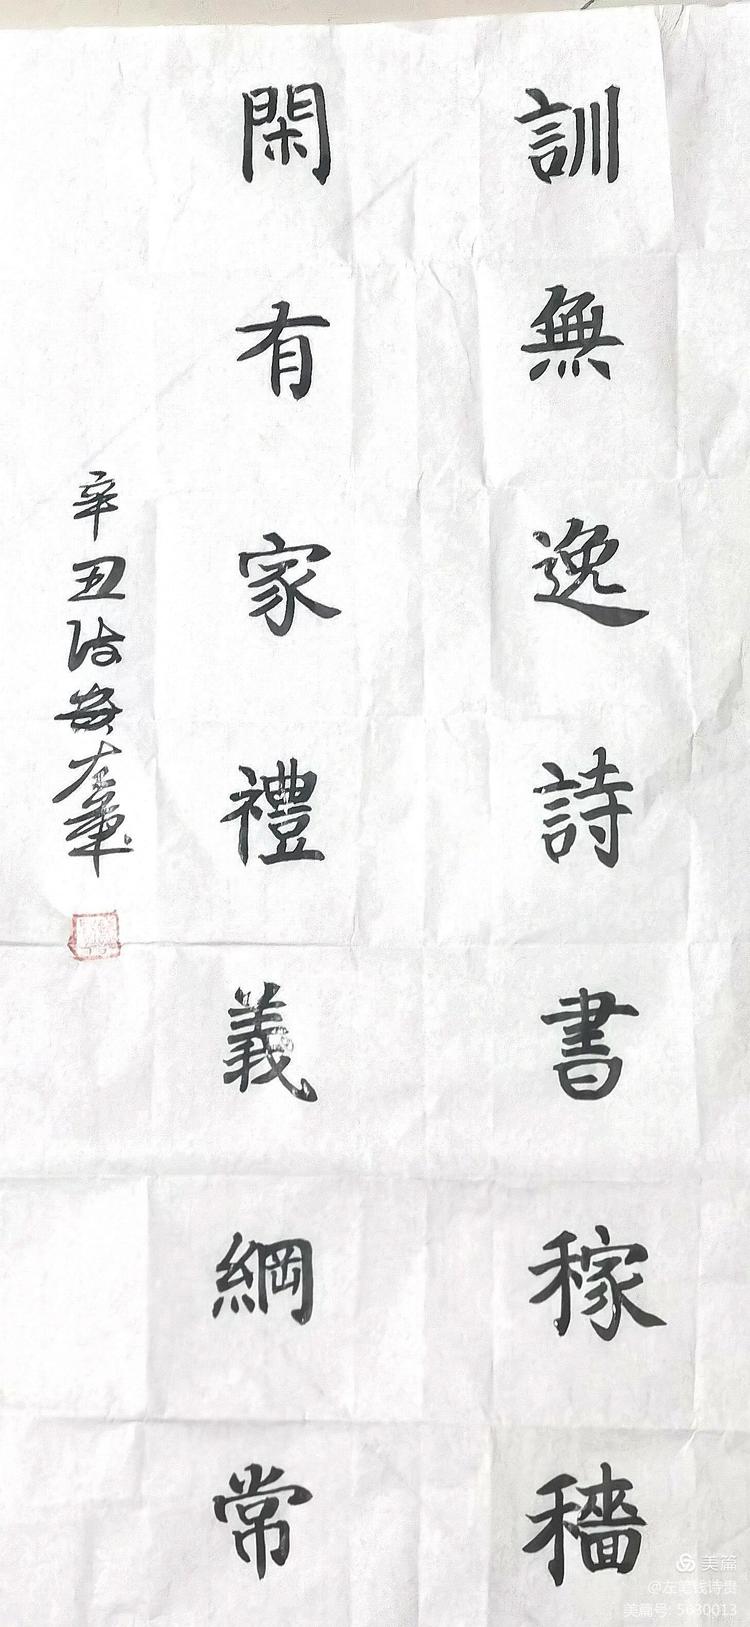 訓無逸詩書稼穡
閑有家禮義綱常
辛丑诗贵左笔
美篇
@左笔钱诗贵
美篇号: 5630013